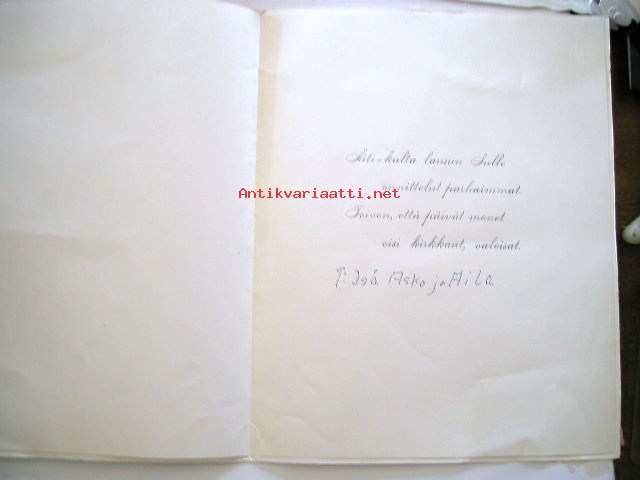 Äiti-kulta lausun Sulle
onnittelut parhaimmat.
Toivon, että päivät monet
oisi kirkkaat, valoisat.
T: Isä Asko ja Aila
Antikvariaatti.net